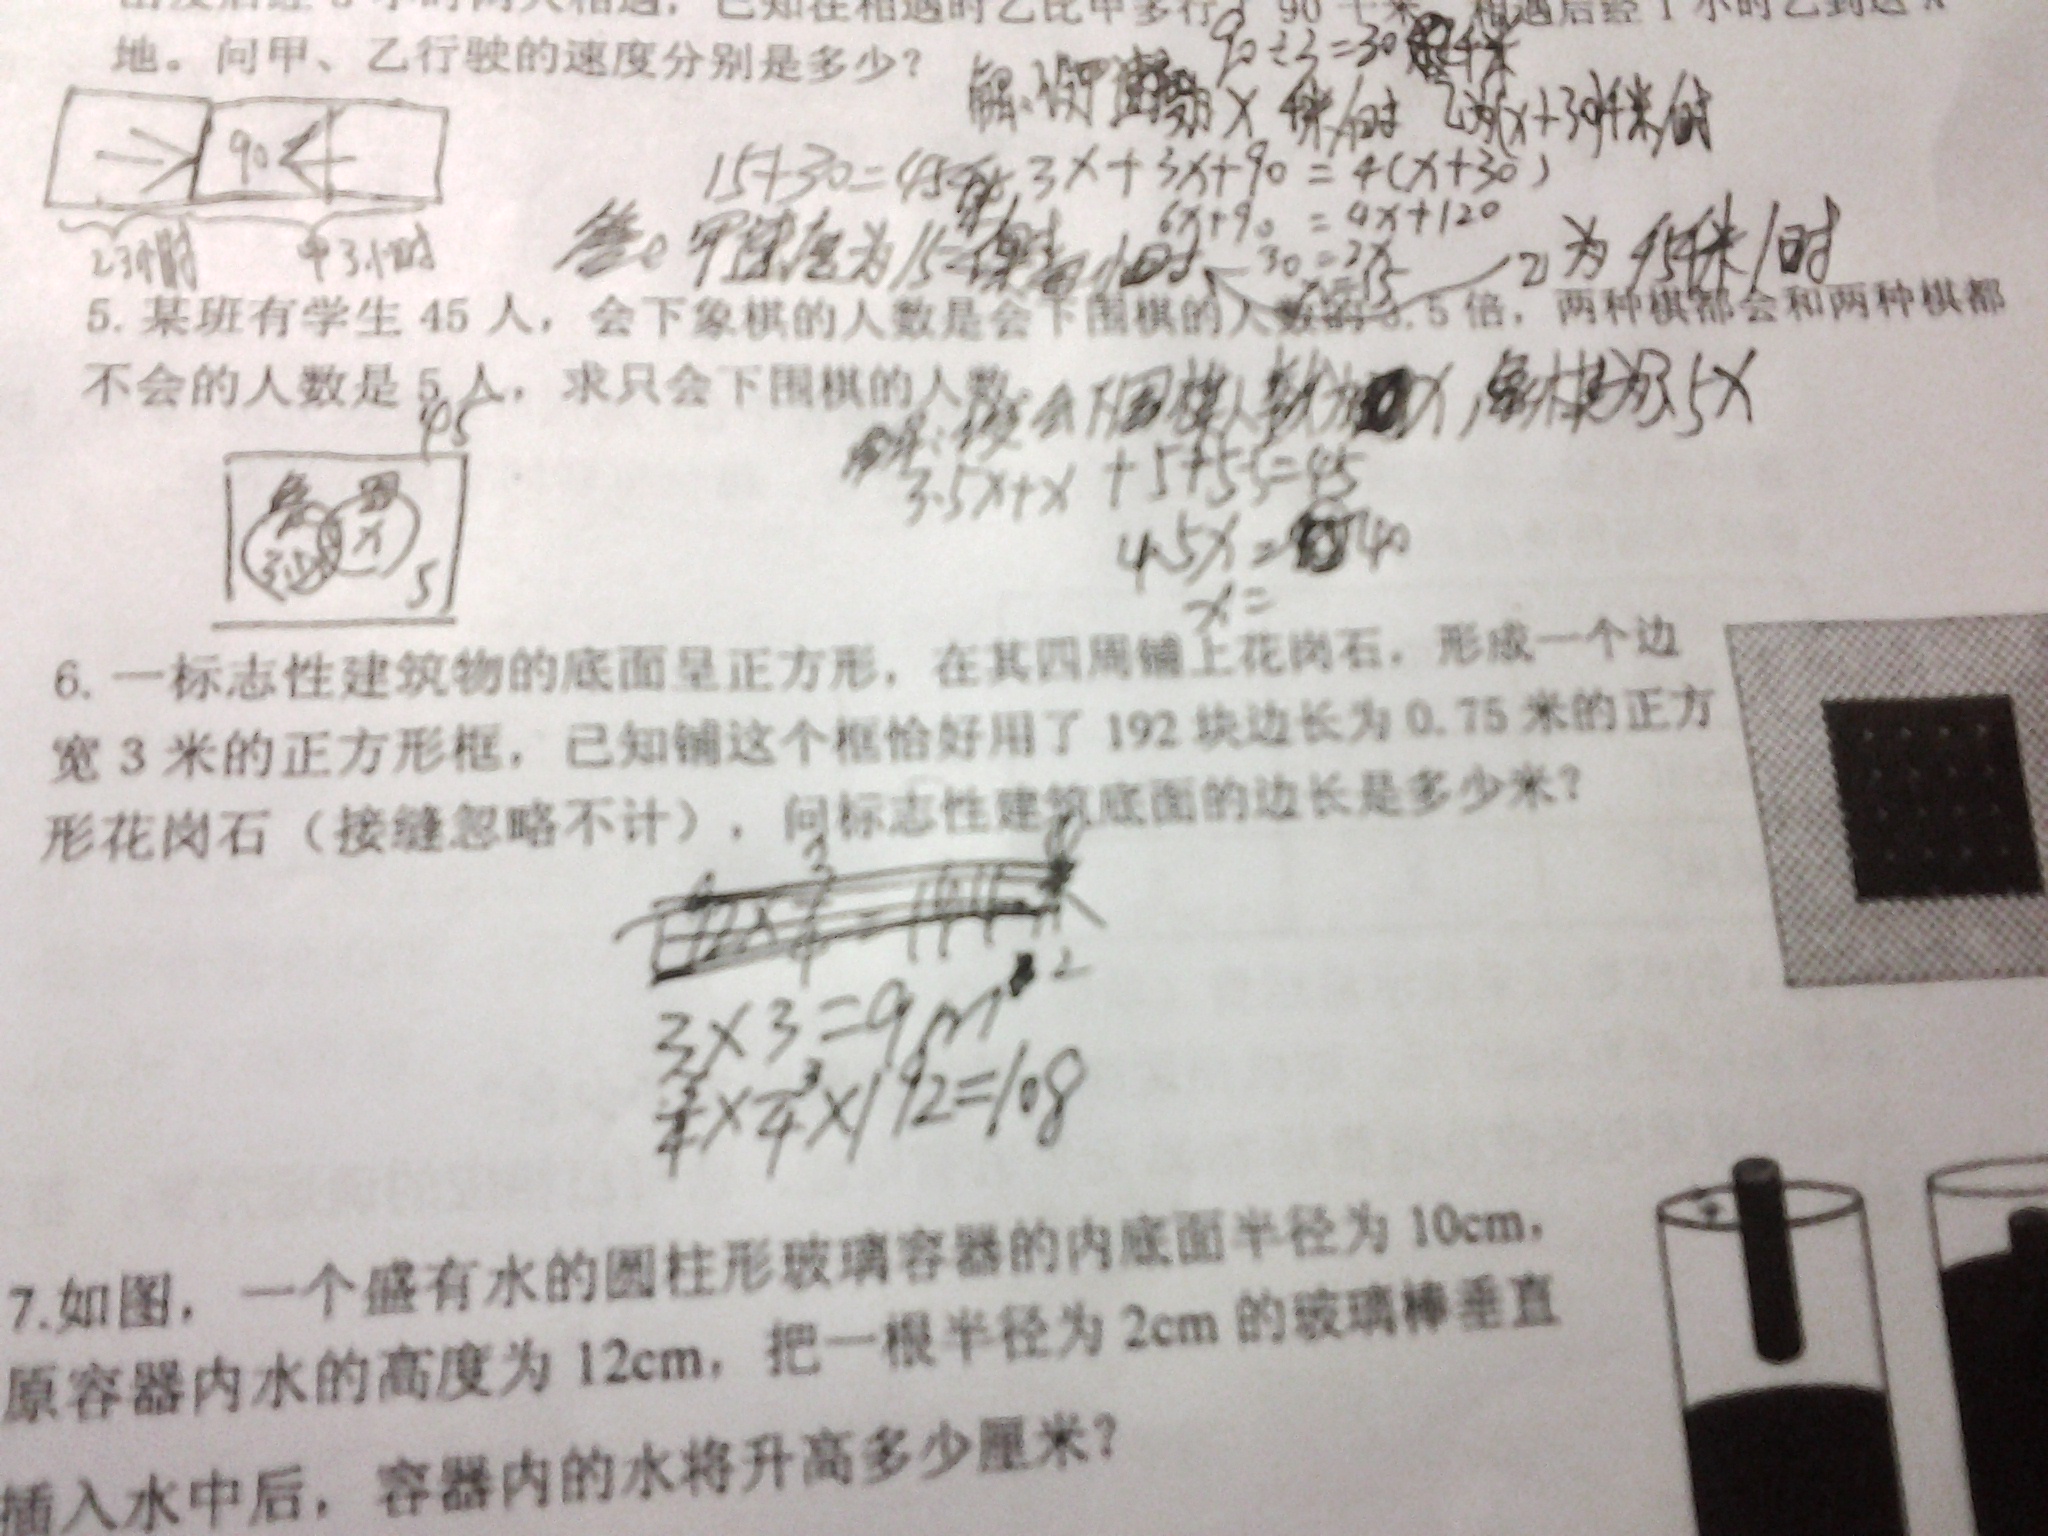 出发后经3小时两人相遇,已知在相遇时乙比甲多行了90千米,相遇后经1小时乙到达A
地。问甲、乙行驶的速度分别是多少?
90÷3=30千米
x千米/时 乙为(x+30)千米/时
90
15+30=45 3x+3x+90=4(x+30)
6x+90=4x+120
答。甲速度为15 乙为45千米/时
30=2x
x=15
5.某班有学生45人,会下象棋的人数是会下围棋的人数的3.5倍,两种棋都会和两种棋都
不会的人数是5人,求只会下围棋的人数。
会下围棋人数为x,象棋为3.5x
45
3.5x+x+5+5=45
x
5
4.5x=40
x=
6.一标志性建筑物的底面呈正方形,在其四周铺上花岗石,形成一个边
宽3米的正方形框,已知铺这个框恰好用了192块边长为0.75米的正方
形花岗石(接缝忽略不计),问标志性建筑底面的边长是多少米?
3×3=9m²
3/4×3/4×192=108
7.如图,一个盛有水的圆柱形玻璃容器的内底面半径为10cm,
原容器内水的高度为12cm,把一根半径为2cm的玻璃棒垂直
插入水中后,容器内的水将升高多少厘米?